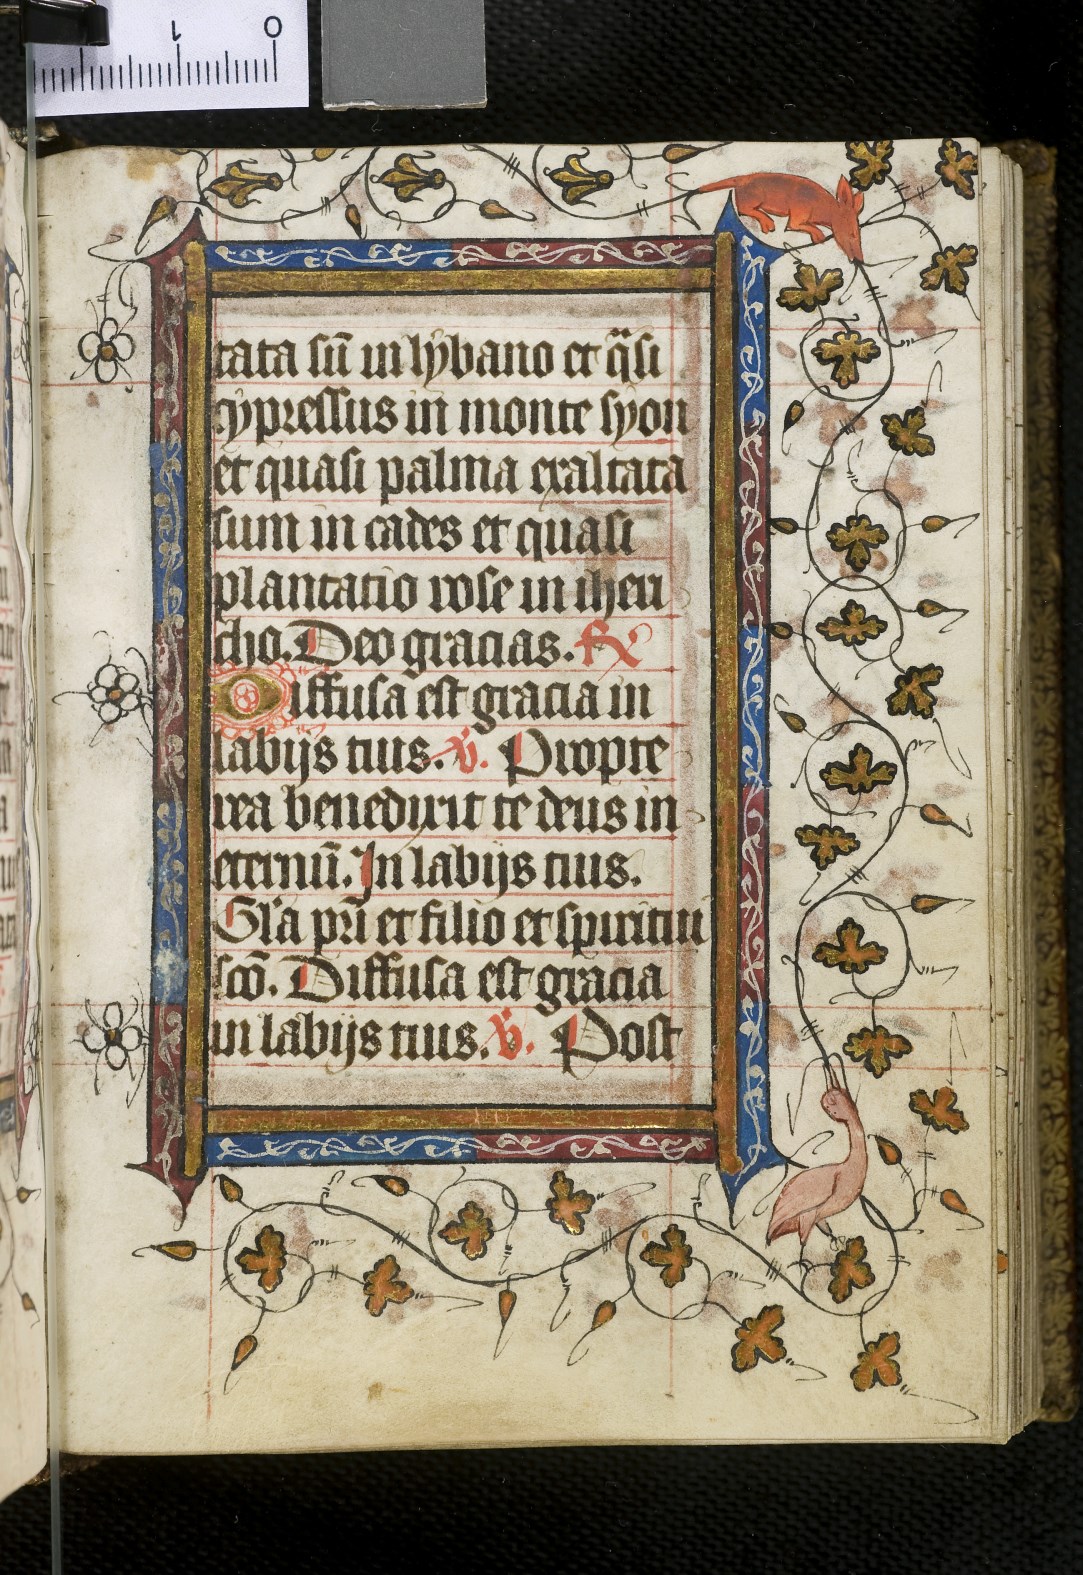 1 0
tata sū in lybano et q̄si
cypressus in monte syon
et quasi palma exaltata
sum in cades et quasi
plantatio rose in iheri
cho. Deo gracias. ℟
Diffusa est gracia in
labijs tuis. ℣. Propte
rea benedixit te deus in
eternū. In labijs tuis.
Gl'a pr̄i et filio et spiritui
scō. Diffusa est gracia
in labijs tuis. ℣. Post